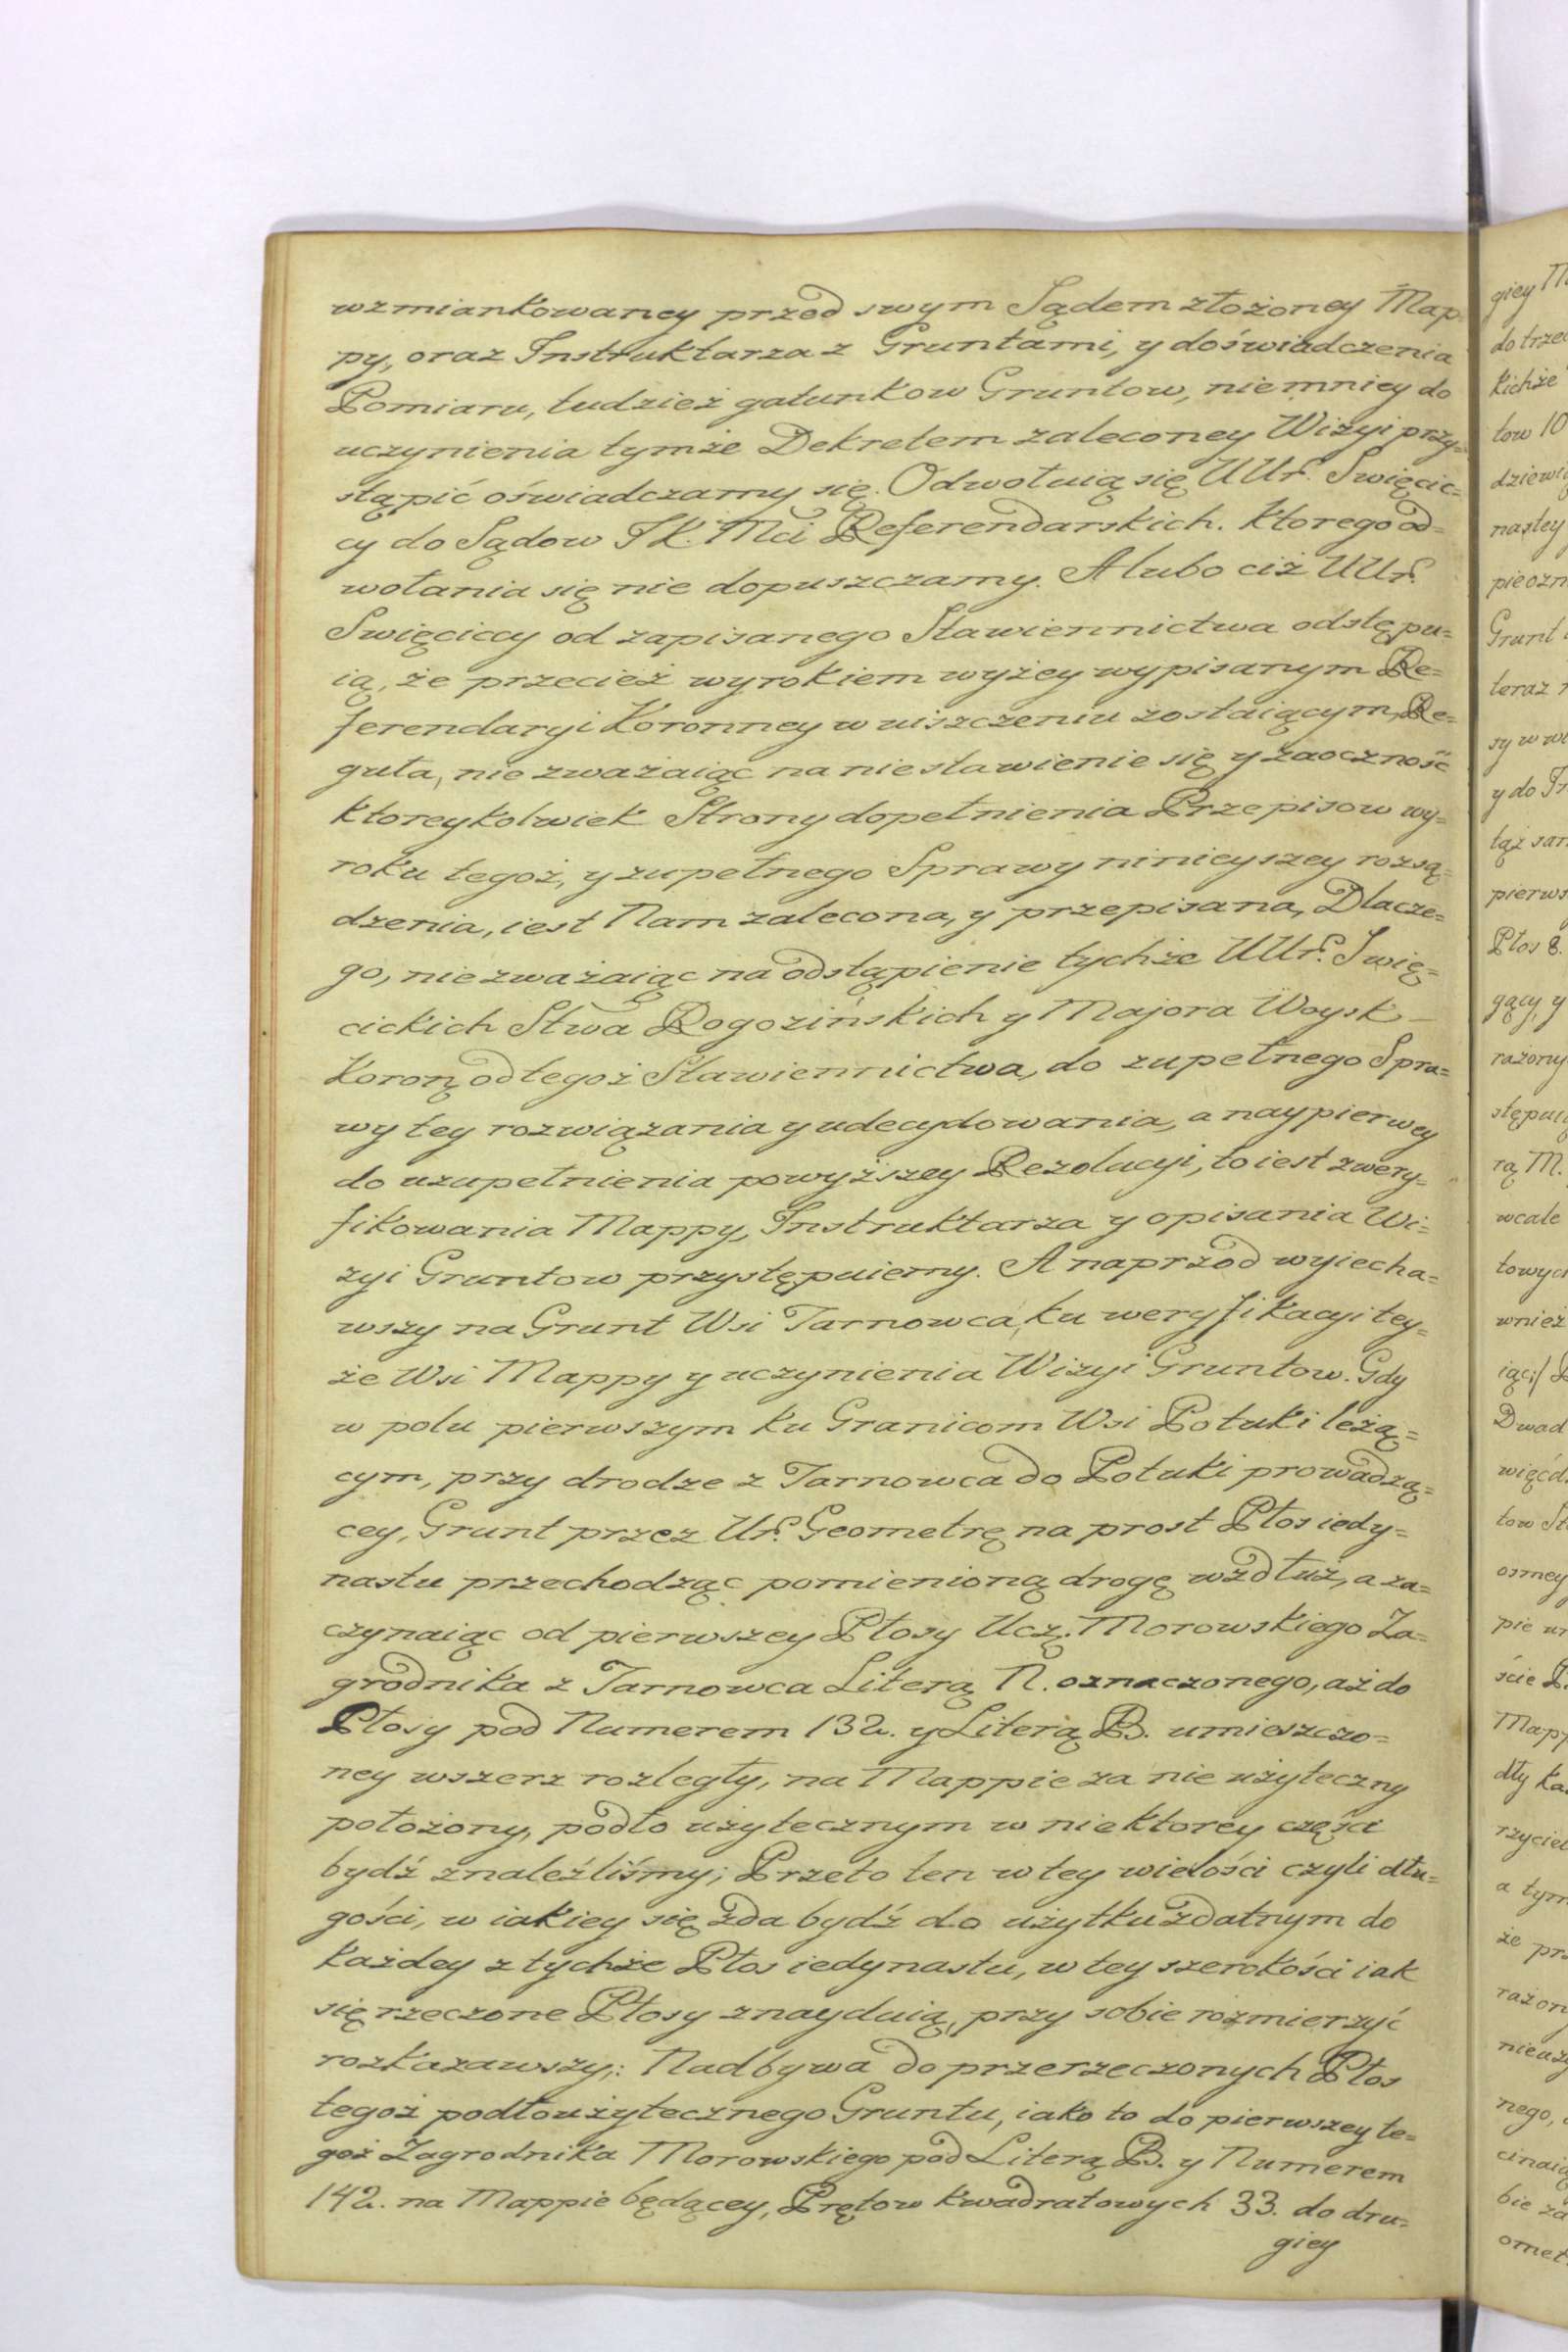 wzmiankowaney przed swym Sądem złożoney Map
py, oraz Instruktarza z Gruntami, y doświadczenia
Pomiaru, tudzież gatunkow Gruntow, niemniey do
uczynienia tymże Dekretem zaleconey Wizyi przy=
stąpić oświadczamy się. Odwołuią się UUr. Swięcic=
cy do Sądow JK. Mci Referendarskich. Ktorego od=
wołania się nie dopuszczamy. A lubo ciż UUr.
Swięciccy od zapisanego Stawiennictwa odstępu=
ią, że przecież wyrokiem wyżey wypisanym Re=
ferendaryi Koronney w uiszczeniu zostaiącym, Re=
guła, nie zważaiąc na niestawienie się y zaoczność
ktoreykolwiek Strony dopełnienia Przepisow wy=
roku tegoż, y zupełnego Sprawy ninieyszey rozsą=
dzenia, iest Nam zalecona, y przepisana, Dlacze=
go, nie zważaiąc na odstąpienie tychże UUr. Swię=
cickich Stwa Rogozińskich y Majora Woysk
Koron̨ od tegoż Stawiennictwa, do zupełnego Spra=
wy tey rozwiązania y udecydowania, a naypierwey
do uzupełnienia powyższey Rezolucyi, to iest zwery=
fikowania Mappy, Instruktarza y opisania Wi=
zyi Gruntow przystępuiemy. A naprzod wyiecha=
wszy na Grunt Wsi Tarnowca, ku weryfikacyi tey=
że Wsi Mappy y uczynienia Wizyi Gruntow. Gdy
w polu pierwszym ku Granicom Wsi Potuki leżą=
cym, przy drodze z Tarnowca do Potuki prowadzą=
cey, Grunt przez Ur. Geometrę na prost Płos iedy=
nastu przechodząc pomienioną drogę wzdłuż, a za=
czynaiąc od pierwszey Płosy Ucz. Morowskiego Za=
grodnika z Tarnowca Literą N. oznaczonego, aż do
Płosy pod Numerem 132. y Literą B. umieszczo=
ney wszerz rozległy, na Mappie za nie użyteczny
położony, podło użytecznym w niektorey części
bydź znaleźliśmy; Przeto ten w tey wielości czyli dłu=
gości, w iakiey się zda bydź do użytku zdatnym do
każdey z tychże Płos iedynastu, w tey szerokości iak
się rzeczone Płosy znayduią, przy sobie rozmierzyć
rozkazawszy;: Nadbywa do przerzeczonych Płos
tegoż podłoużytecznego Gruntu, iako to do pierwszey te=
goż Zagrodnika Morowskiego pod Literą B. y Numerem
142. na Mappie będącey, Prętow kwadratowych 33. do dru=
giey